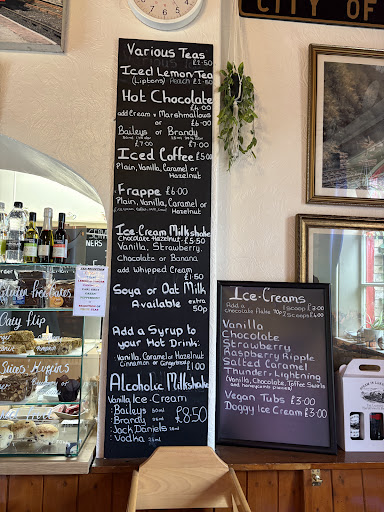 CITY OF
Various Teas
£2.50
Iced Lemon Tea
(Liptons) Peach £2.50
Hot Chocolate
£4.00
add Cream & Marshmallows
or £6.00
Baileys or Brandy
£7.00
Iced Coffee £5.00
Plain, Vanilla, Caramel or
Hazelnut
Frappe £6.00
Plain, Vanilla, Caramel or
Hazelnut
Ice-Cream Milkshake
Chocolate Hazelnut £5.50
Vanilla, Strawberry,
Chocolate or Banana
add Whipped Cream
£1.50
Soya or Oat Milk
Available extra
50p
Add a Syrup to
your Hot Drink:
Vanilla, Caramel or Hazelnut
Cinnamon or Gingerbread
£1.00
Alcoholic Milkshake
Vanilla Ice-Cream
Baileys 50ml £8.50
Brandy
Jack Daniels 25ml
Vodka 25ml
Ice-Creams
Add a
chocolate flake 70p
1 Scoop £3.00
2 Scoops £4.00
Vanilla
Chocolate
Strawberry
Raspberry Ripple
Salted Caramel
Thunder & Lightning
(Vanilla, Chocolate, Toffee Swirls
and Honeycomb pieces)
Vegan Tubs £3.00
Doggy Ice Cream £3.00
Gluten Free Cakes